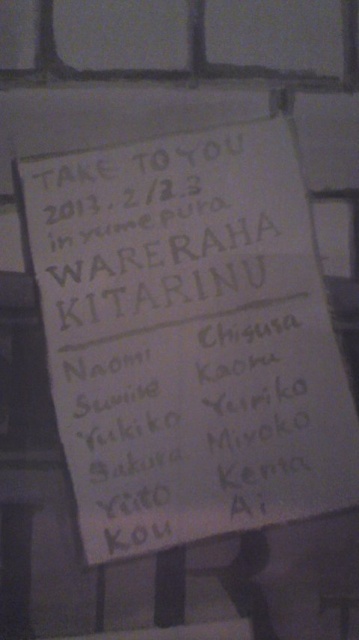 TAKE TO YOU
2013.2/2.3
in yumepura
WARERAHA
KITARINU
Naomi Chigusa
Sumire Kaoru
Yukiko Yuriko
Sakura Miyoko
Yuto Kenta
Kou Ai